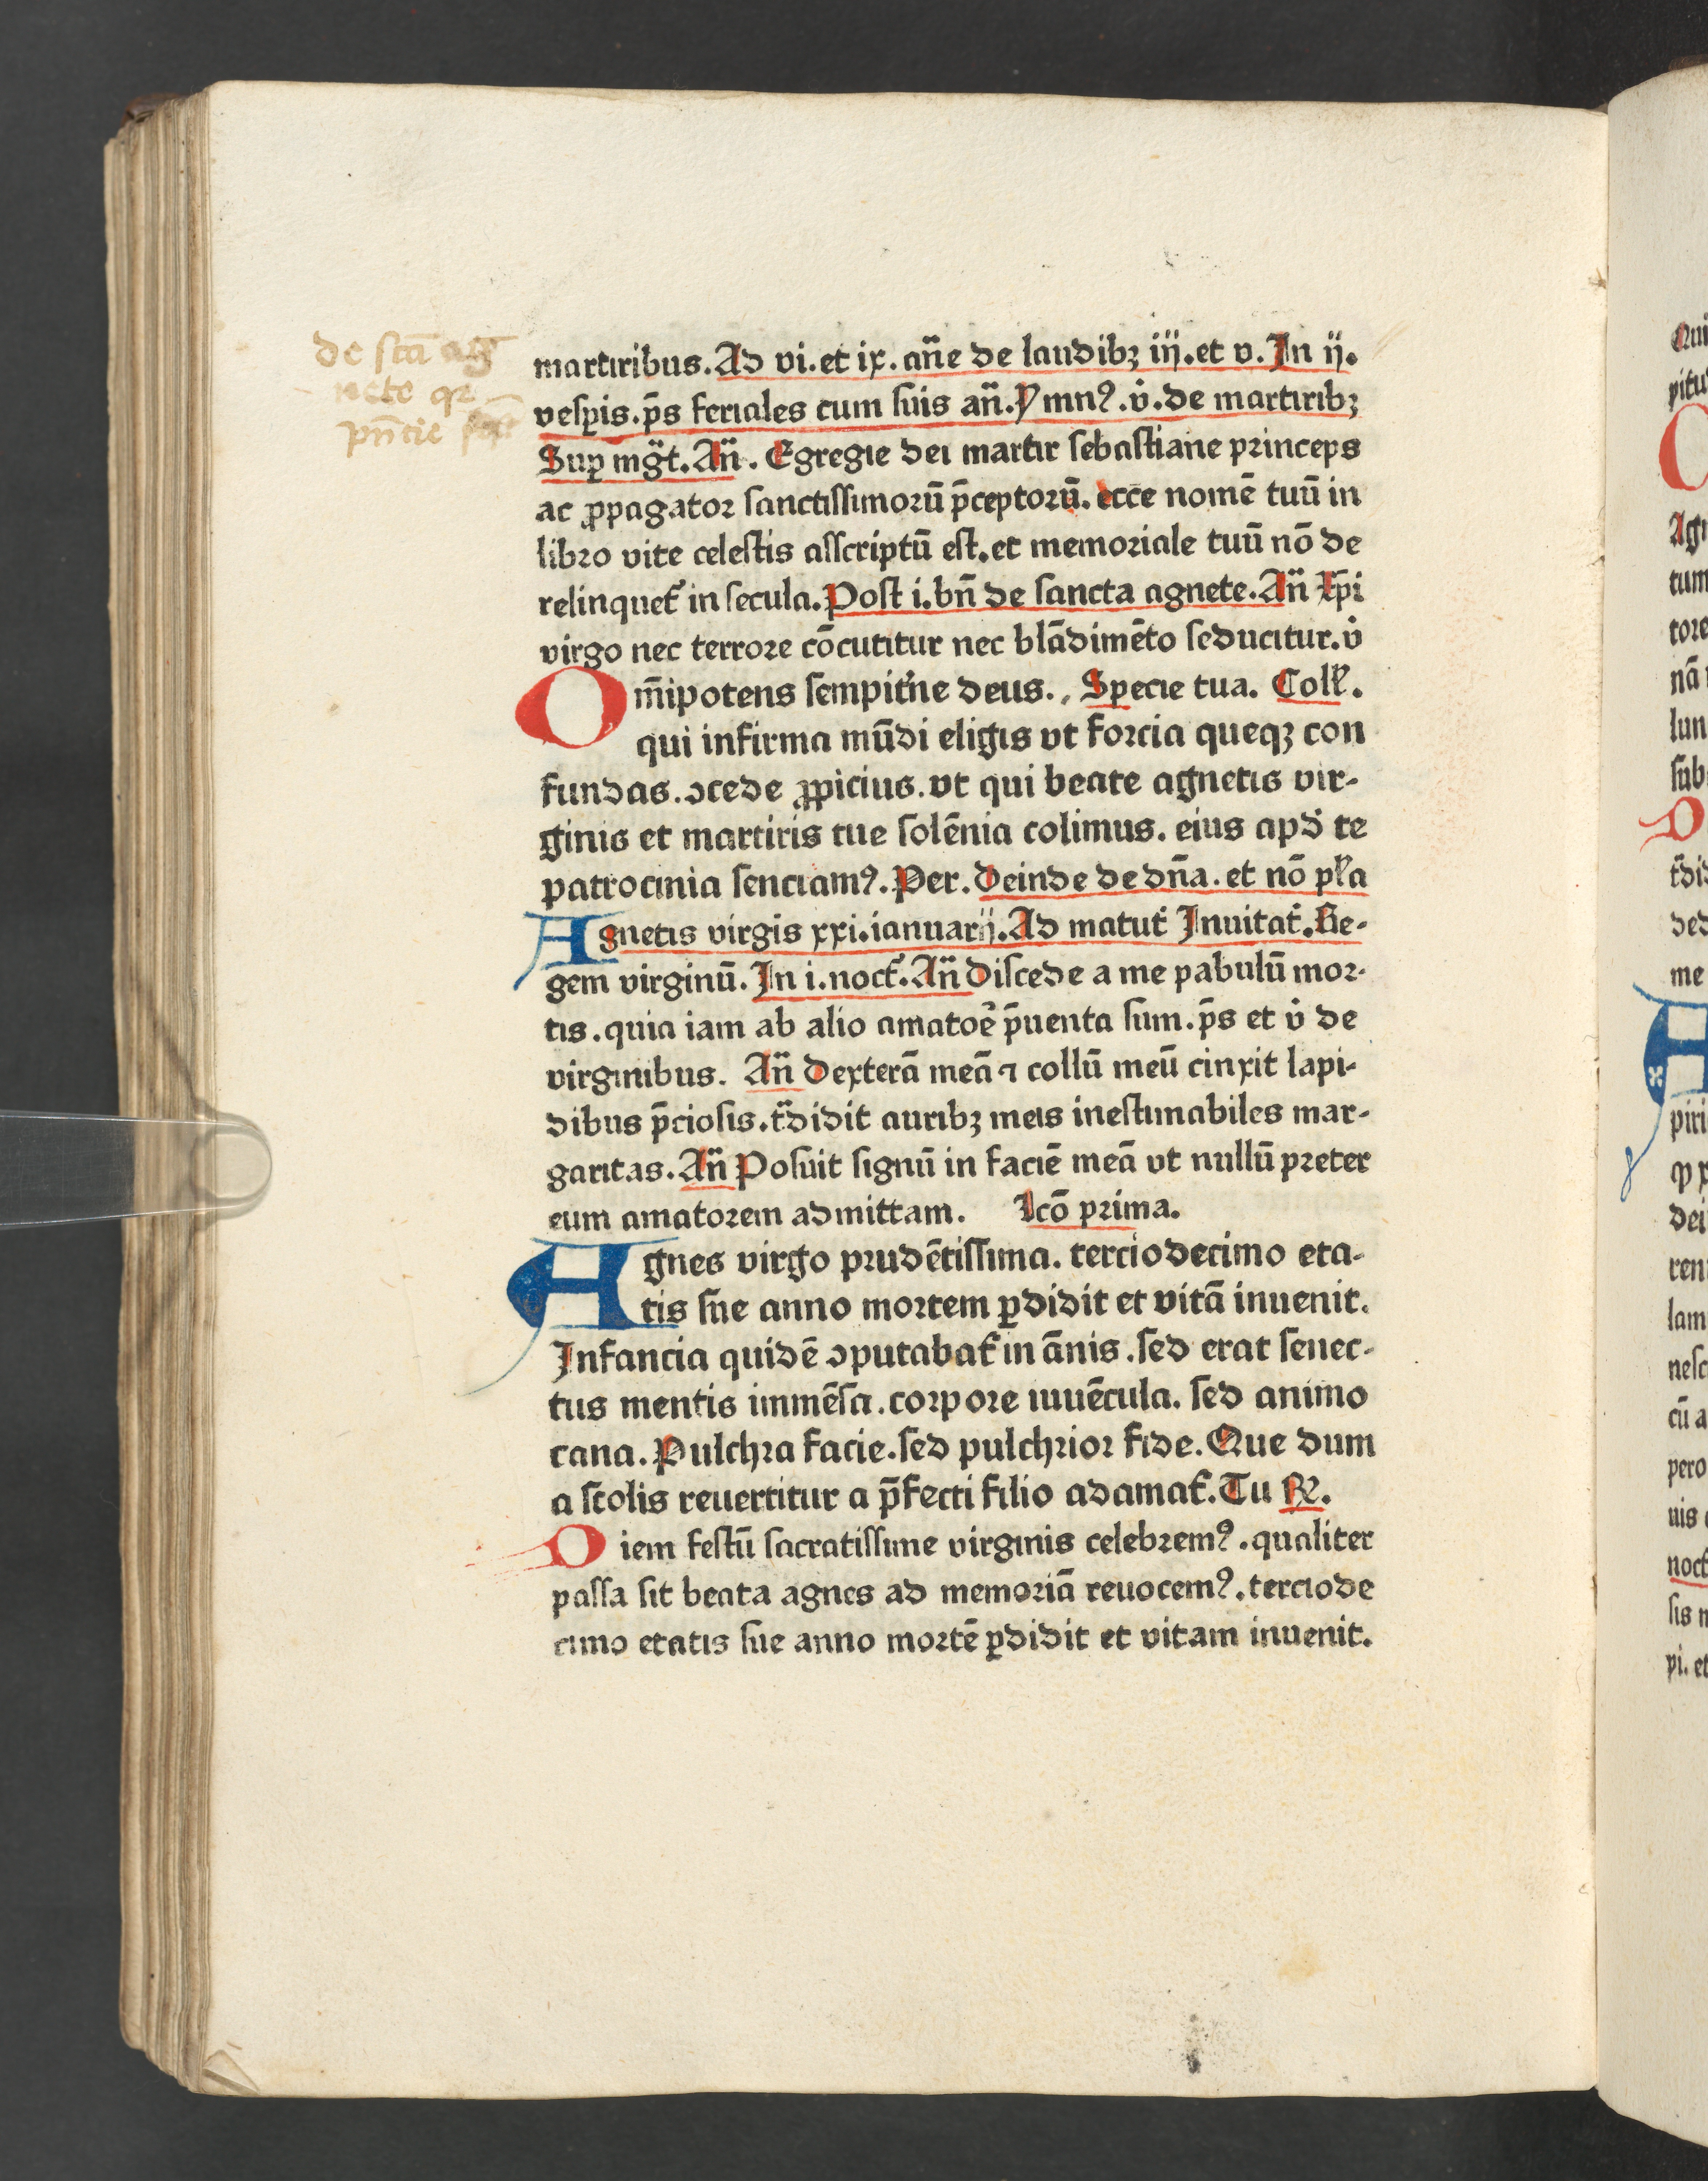 de sctā ag
nete qr̄
pn̄cie
martiribus. Ad vi. et ix. an̄e de laudibꝫ iij. et v. In ij.
vesꝑis. p̄s feriales cum suis an̄. Ymnꝰ. v̇. de martiribꝫ
Suꝑ mḡt. An̄. Egregie dei martir sebastiane princeps
ac ꝓpagator sanctissimorū p̄ceptorū. ecce nomē tuū in
libro vite celestis asscriptū est. et memoriale tuū nō de
relinquet᷑ in secula. Post i. bn̄ de sancta agnete. An̄ Xp̄i
virgo nec terrore cōcutitur nec blādimēto seducitur. v̇
Om̄ipotens sempit᷑ne deus., Specie tua. Coll̄.
qui infirma mūdi eligis vt forcia queqꝫ con
fundas. ꝯcede ꝓpicius. vt qui beate agnetis vir-
ginis et martiris tue solēnia colimus. eius apd̓ te
patrocinia senciamꝰ. Per. Deinde de dn̄a. et nō pl̓a
Agnetis virgis xxi. ianuarij. Ad matut᷑ Inuitat᷑. Re-
gem virginū. In i. noct᷑. An̄ Discede a me pabulū mor-
tis. quia iam ab alio amatoe᷑ p̄uenta sum. p̄s et v̇ de
virginibus. An̄ Dexterā meā ⁊ collū meū cinxit lapi-
dibus p̄ciosis. t̄didit auribꝫ meis inestimabiles mar-
garitas. An̄ Posuit signū in faciē meā vt nullū preter
eum amatorem admittam. lcō prima.
Agnes virgo prudētissima. terciodecimo eta-
tis sue anno mortem ꝑdidit et vitā inuenit.
Infancia quidē ꝯputabat᷑ in ānis. sed erat senec-
tus mentis immēsa. corpore iuuēcula. sed animo
cana. Pulchra facie. sed pulchrior fide. Que dum
a scolis reuertitur a p̄fecti filio adamat᷑. Tu ℞.
Diem festū sacratissime virginis celebremꝰ. qualiter
passa sit beata agnes ad memoriā reuocemꝰ. terciode
cimo etatis sue anno mortē ꝑdidit et vitam inuenit.